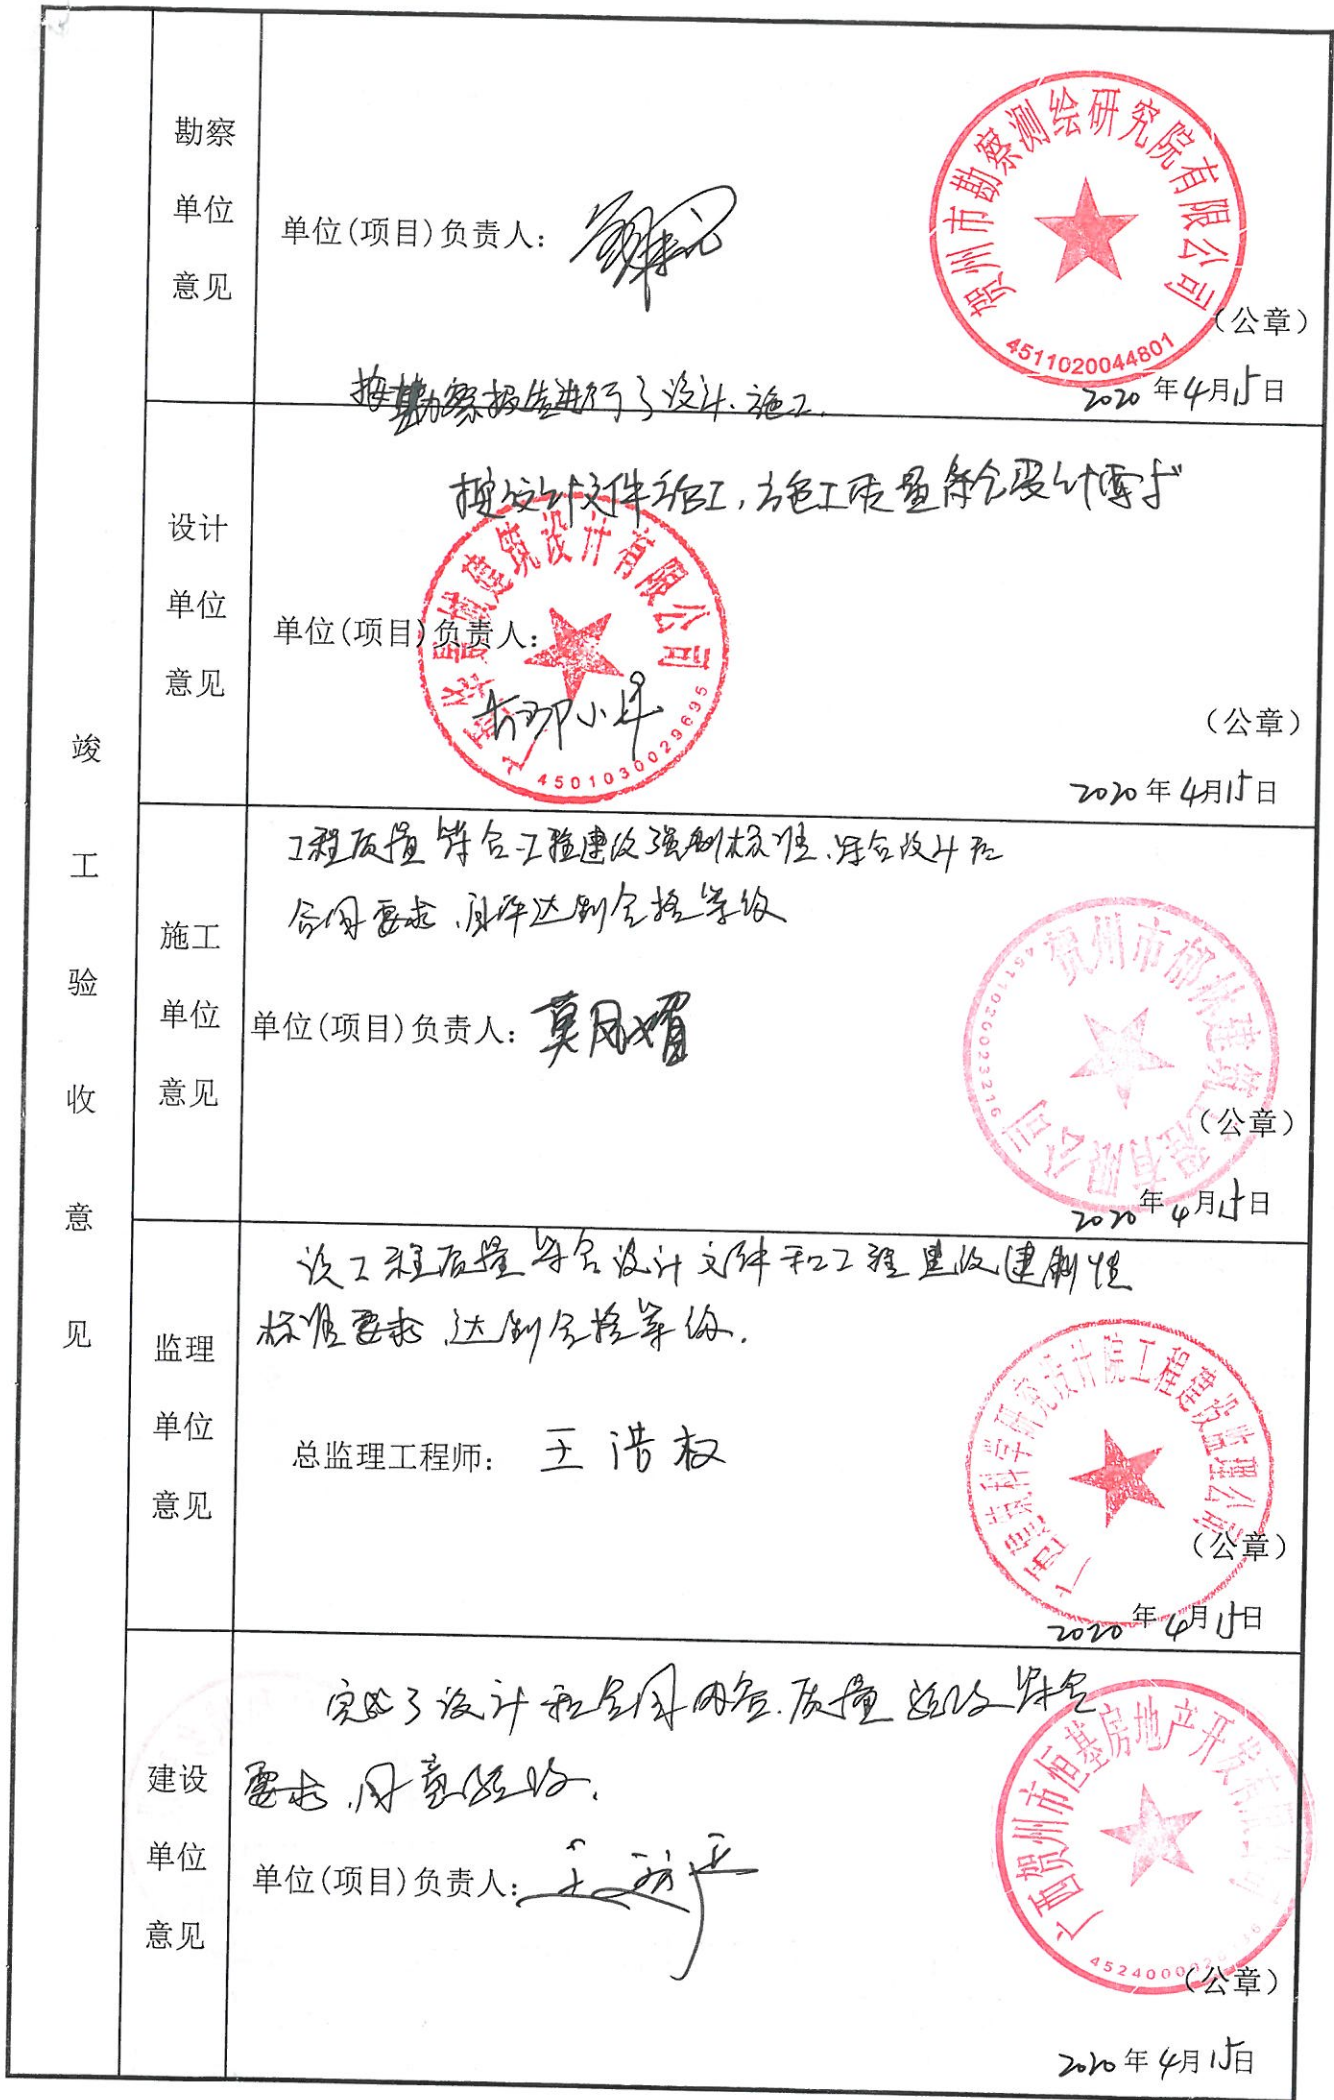 竣工验收意见
勘察单位意见
单位(项目)负责人:
贺州市勘察测绘研究院有限公司
4511020044801
(公章)
2020年4月15日
按勘察报告进行了设计、施工.
设计单位意见
按设计文件施工,施工质量符合设计要求
单位(项目)负责人:
建筑设计有限公司
4501030029695
(公章)
2020年4月15日
施工单位意见
工程质量符合工程建设强制标准、符合设计和
合同要求,自评达到合格等级
单位(项目)负责人:莫凤媚
贺州市郁林建筑工程有限公司
4511020023219
(公章)
2020年4月15日
监理单位意见
该工程质量符合设计文件和工程建设建制性
标准要求,达到合格等级.
总监理工程师:王浩权
广西建筑科学研究设计院工程建设监理公司
(公章)
2020年4月15日
建设单位意见
完成了设计和合同内容.质量验收符合
要求,同意验收.
单位(项目)负责人:
广西贺州市恒基房地产开发有限公司
(公章)
2020年4月15日